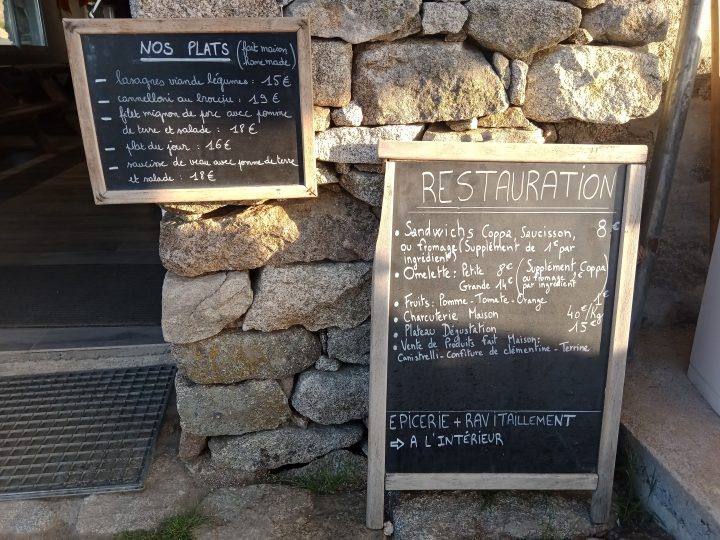 NOS PLATS (fait maison
home made)
- lasagnes viande légumes : 15€
- cannelloni au brocciu : 19€
- filet mignon de porc avec pomme
de terre et salade : 18€
- plat du jour : 16€
- saucisse de veau avec pomme de terre
et salade : 18€
RESTAURATION
• Sandwichs Coppa, Saucisson, 8€
ou fromage (Supplément de 1€ par
ingrédient)
• Omelette : Petite 8€ (Supplément Coppa
Grande 14€ ou fromage 2€
par ingrédient
• Fruits : Pomme - Tomate - Orange 1€
• Charcuterie Maison 40€/kg
• Plateau Dégustation 15€
• Vente de Produits fait Maison :
Canistrelli - Confiture de clémentine - Terrine
EPICERIE + RAVITAILLEMENT
⇨ A L'INTÉRIEUR